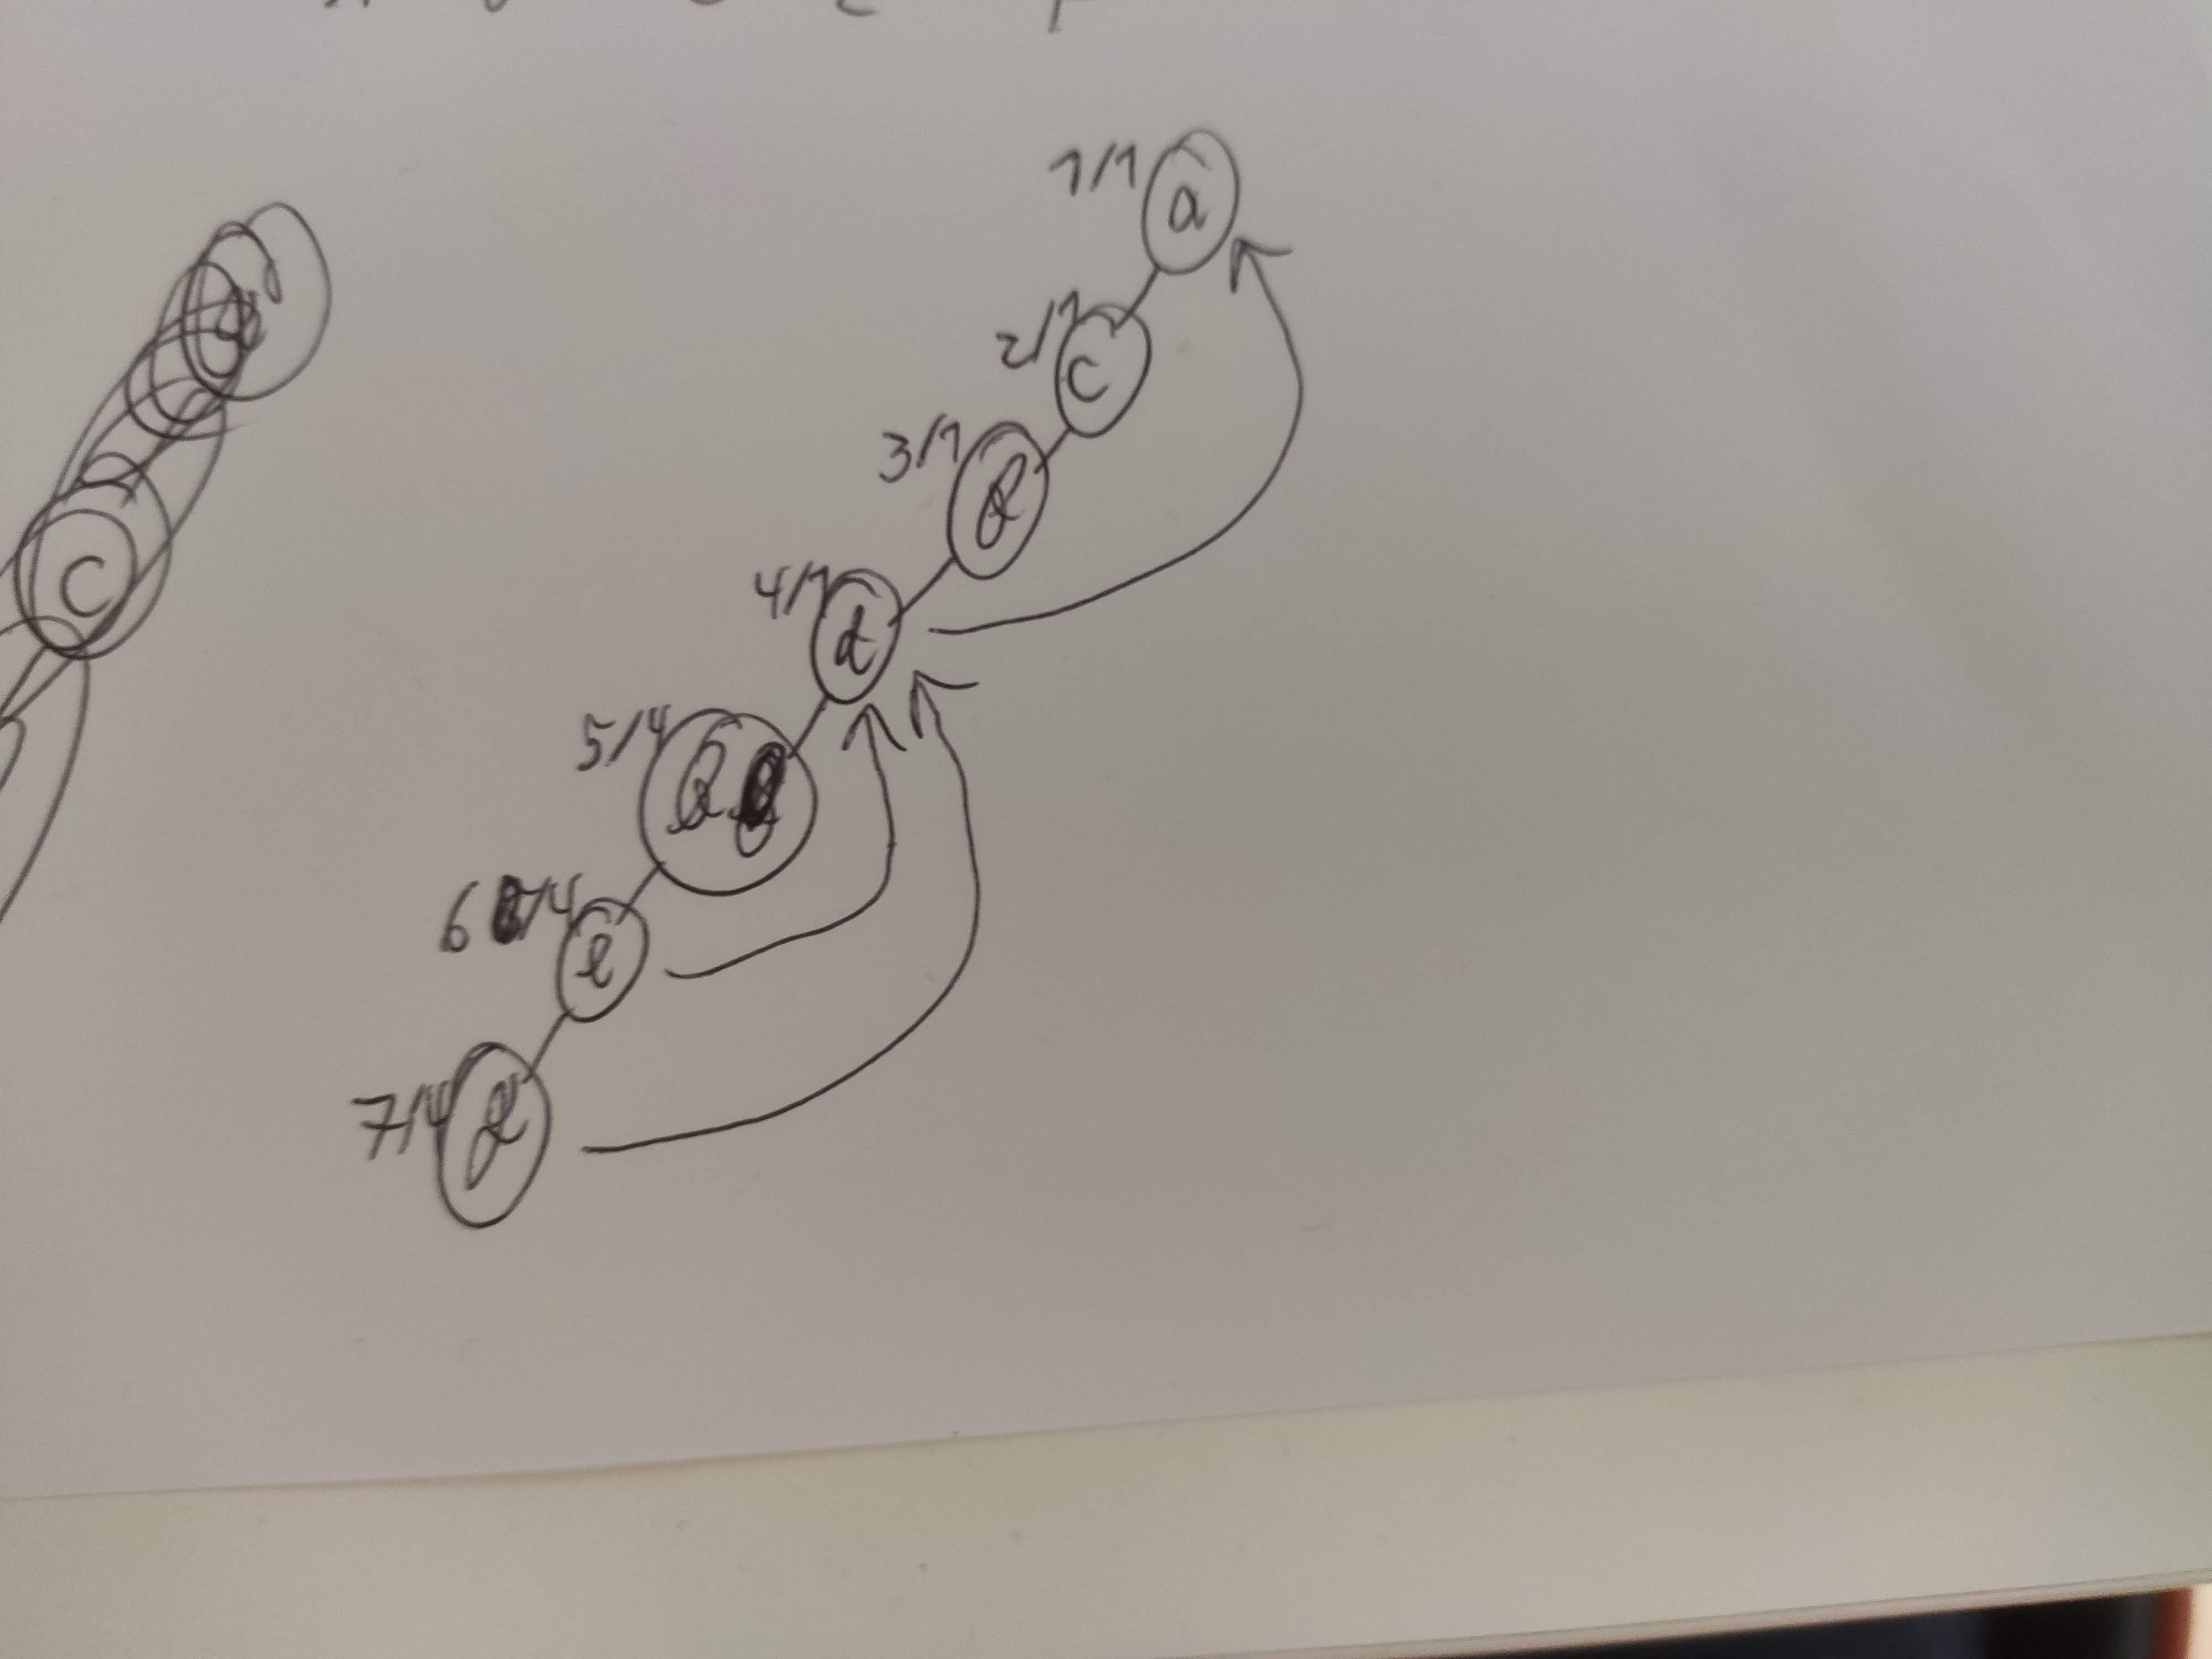 1/1 a
2/1 c
3/1
4/1 d
5/4 b
6 /4 e
7/4
c